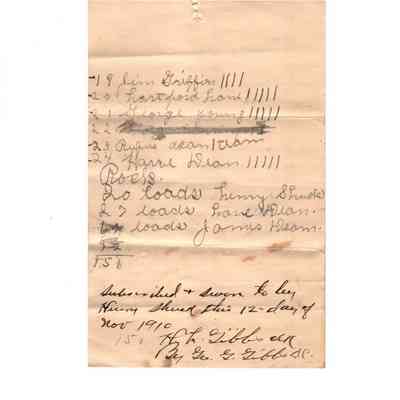 19 Jim Griffin ||||
20 Hartford Lane |||||
21 George young |||||
22
23 Rufus dean 1 team
24 Harre Dean |||||
Rocks.
20 loads Henry Shrede
27 loads Lane Dean.
loads James Dean.
156
Subscribed & sworn to by
Henry Shred this 12 day of
Nov 1910
156 H. L. Gibbs clk
By Geo. G. Gibbs D.C.